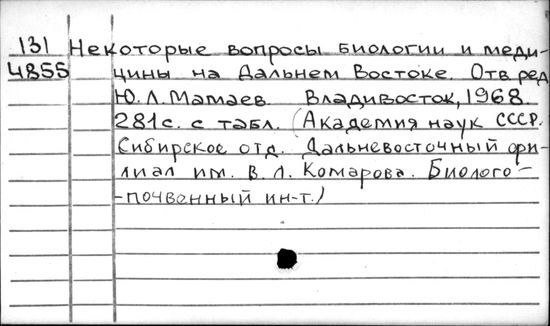 131 Некоторые вопросы биологии и меди-
4855 цины на Дальнем Востоке. Отв. ред.
Ю.Л. Мамаев. Владивосток, 1968.
281 с. с табл. (Академия наук СССР.
Сибирское отд. Дальневосточный фи-
лиал им. В.Л. Комарова. Биолого-
-почвенный ин-т.)